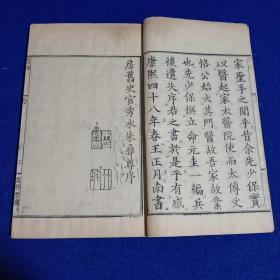 家聖手之聞乎昔余先少保實
以醫起家太醫院使而太傅文
恪公始大其門醫故吾家故業
也先少保撰立命元圭一編兵
後遺失序君之書於是乎有感
康熙四十八年春王正月南書
房舊史官秀水朱彝尊序